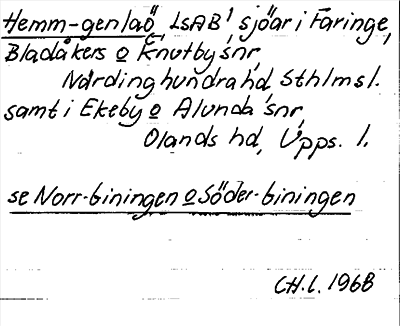 Hemm-genlaö, LSAB¹ sjöar i Faringe,
Bladåkers o Knutby snr,
Närdinghundra hd, Sthlms l.
samt i Ekeby o Alunda snr,
Olands hd, Upps. l.
se Norr-biningen o Söder-biningen
CH.l. 1968